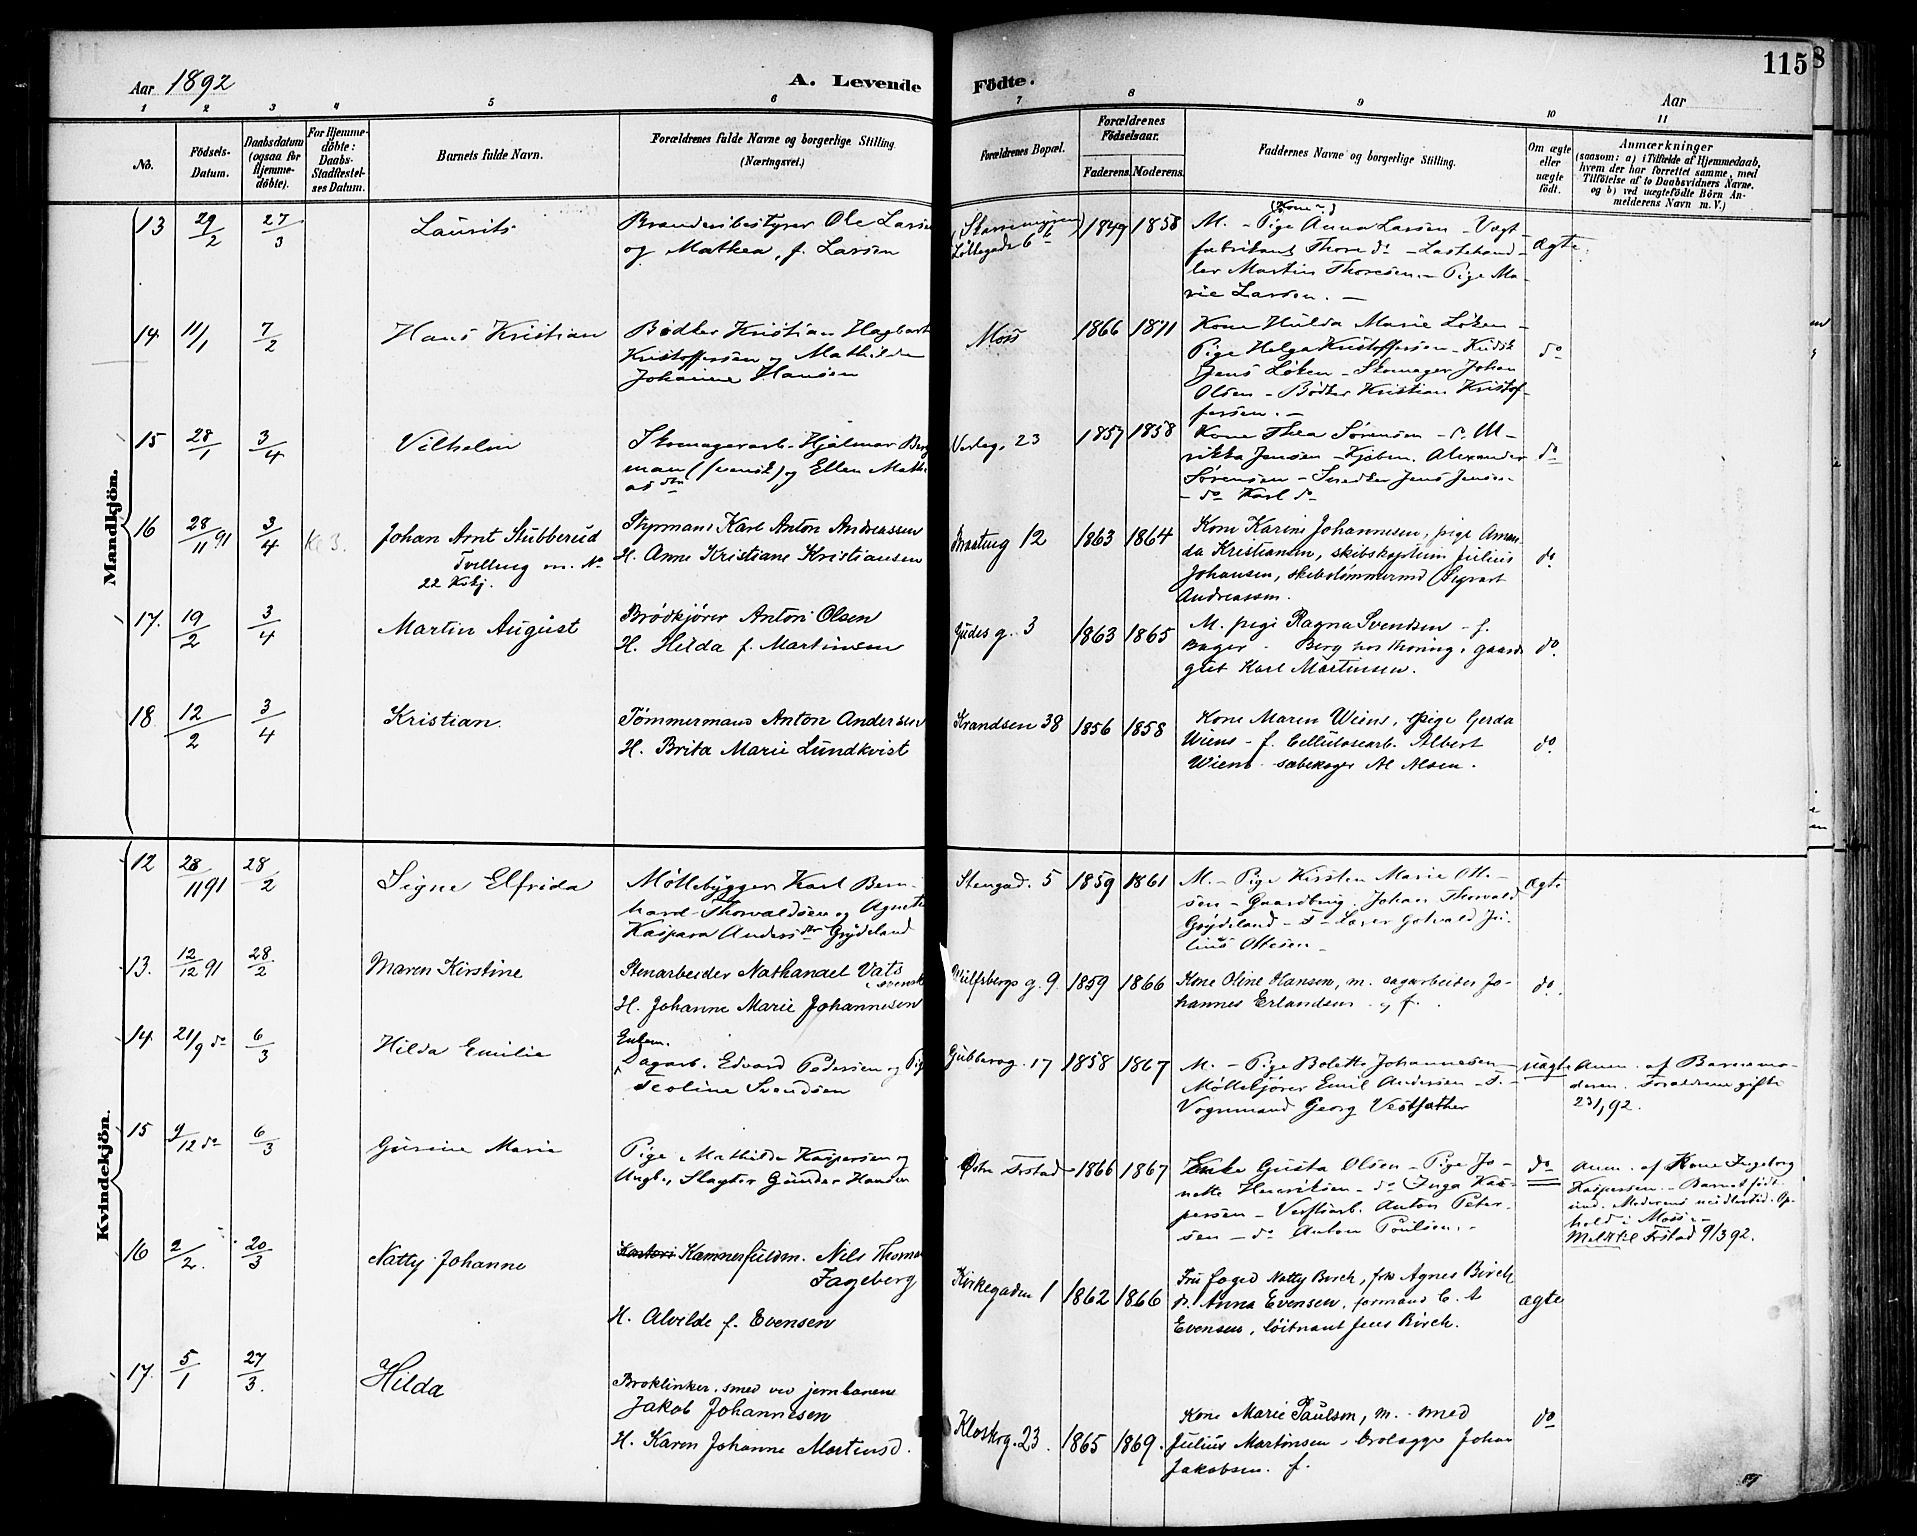 Aar 1892
A. Levende
Födte.
115
8
Aar
1 2 3 4 5 6 7 8 9 10 11
No.
Födsels-Datum.
Daabsdatum (ogsaa for Hjemme-döbte).
For Hjemme-döbte: Daabs-Stadfæstel-ses Datum.
Barnets fulde Navn.
Forældrenes fulde Navne og borgerlige Stilling (Næringsvei.)
Forældrenes Bopæl.
Forældrenes Födselsaar.
Faderens. Moderens.
Faddernes Navne og borgerlige Stilling.
Om ægte eller uægte födt.
Anmærkninger
(saasom: a) i Tilfælde af Hjemmedaab, hvem der har forrettet samme, med Tilföielse af to Daabsvidners Navne. og b) ved uægtefödte Börn An-melderens Navn m. V.)
Mandkjön.
13 29/2 27/3 Laurits
Ole Larsen
og Mathea, f. Larsen
Løkkegade 6 b
1849 1858
(Kone)
M. - Pige Anna Larsen - Vægt-
fabrikant Thore do - Lastehand-
ler Martin Thoresen - Pige Ma-
rie Larsen. -
ægte.
14 11/1 7/2 Hans Kristian
Bødker Kristian Hagbart
Kristoffersen og Mathilde
Johanne Hansen
Moss
1866 1871
Kone Hulda Marie Løken -
Pige Helga Kristoffersen - Kudsk
Jens Løken - Skomager Johan
Olsen - Bødker Kristian Kristof-
fersen. -
do
15 28/1 3/4 Vilhelm
Skomagerarb. Hjalmar Berg
man (svensk) og Ellen Mathi
asdtr
Verleg. 23
1857 1858
Kone Thea Sørensen - P. M -
rikka Jensen - Kjøbm. Alexander
Sørensen - Snedker Jens Jensen -
- do Karl do
do
16 28/11 91 3/4 Johan Arnt Stubberud
Tvilling m. No
22 Kvkj.
Styrmand Karl Anton Andreassen
H. Anne Kristiane Kristiansen
12
1863 1864
Kone Karine Johannesen, pige Aman
da Kristiansen, skibskaptein Julius
Johansen, skibstømmermd Sigvart
Andreassen.
do.
17. 19/2 3/4 Martin August
Brødkjører Anton Olsen
H. Hilda f. Martinsen
Gudes g. 3
1863 1865
M. pige Ragna Svendsen - f.
Bager Berg hos Thoring, gaard
gut Karl Martinsen.
do.
18. 12/2 3/4 Kristian.
Tømmermand Anton Andersen
H. Brita Marie Lundkvist
Strandsen 38
1856 1858
Kone Maren Wiens, pige Gerda
Wiens - f. Cellulosearb. Albert
Wiens. sæbekoger Al Alsen.
do.
Kvindekjön.
12 28/11 91 28/2 Signe Elfrida
Møllebygger Karl Bern-
hard Thorvaldsen og Agnethe
Kaspara Andersdtr Grydeland
Stengad. 5
1859 1861
M. - Pige Kirsten Marie Otte-
sen - Gaardbrug. Johan Thorvald
Grydeland - S - Lærer Gotvald Ju-
lius Ottesen -
ægte
13. 12/12 91 28/2 Maren Kirstine
Stenarbeider Nathanael Vats
svensk
H. Johanne Marie Johannesen
Wulfsbergs g. 9
1859 1866
Kone Oline Hansen, m. sagarbeider Jo-
hannes Erlandsen - g f.
do.
14. 21/9 do 6/3 Hilda Emilie
Enkem.
Sagarb. Edvard Pedersen og Pige
Teoline Svendsen
Gubberog. 17
1858 1867
M. - Pige Bolette Johannesen -
Møllekjører Emil Andersen - S. -
Vognmand Georg Vestfather
uægte
Anm. af Barnemo-
deren. Forældrene gifte
23/1 92.
15 9/12 do 6/3 Gurine Marie
Pige Mathilde Kaspersen og
Ungk. Slagter Gunder Hansen
Østre Frstad
1866 1867
Enke Gusta Olsen - Pige Jo-
nette Henriksen - do Inga Kas-
persen - Verftarb. Anton Peter-
sen - do Anton Poulsen. -
do
Anm. af Kone Ingeborg
Kaspersen. - Barnet født
und. Moderens midlertid. Op-
hold i Moss -
Meldt til Frstad 9/3 92.
16 2/2. 20/3 Natty Johanne
Kammerfuldm. Nils Thomas
Fageberg
H. Alvilde f. Evensen
Kirkegaden 1
1862 1866
Fru foged Natty Birch, frk Agnes Birch
do. Anna Evensen, formand C. A
Evensen, løitnant Jens Birch.
ægte
17. 5/1 27/3. Hilda
Broklinker. smed ved jernbanene
Jakob Johannesen
H. Karen Johanne Martinsd.
Klosterg. 23.
1865 1869.
Kone Marie Paulsen, m. - med
Julius Martinsen, Brolægge Johan
Jakobsen. f.
do